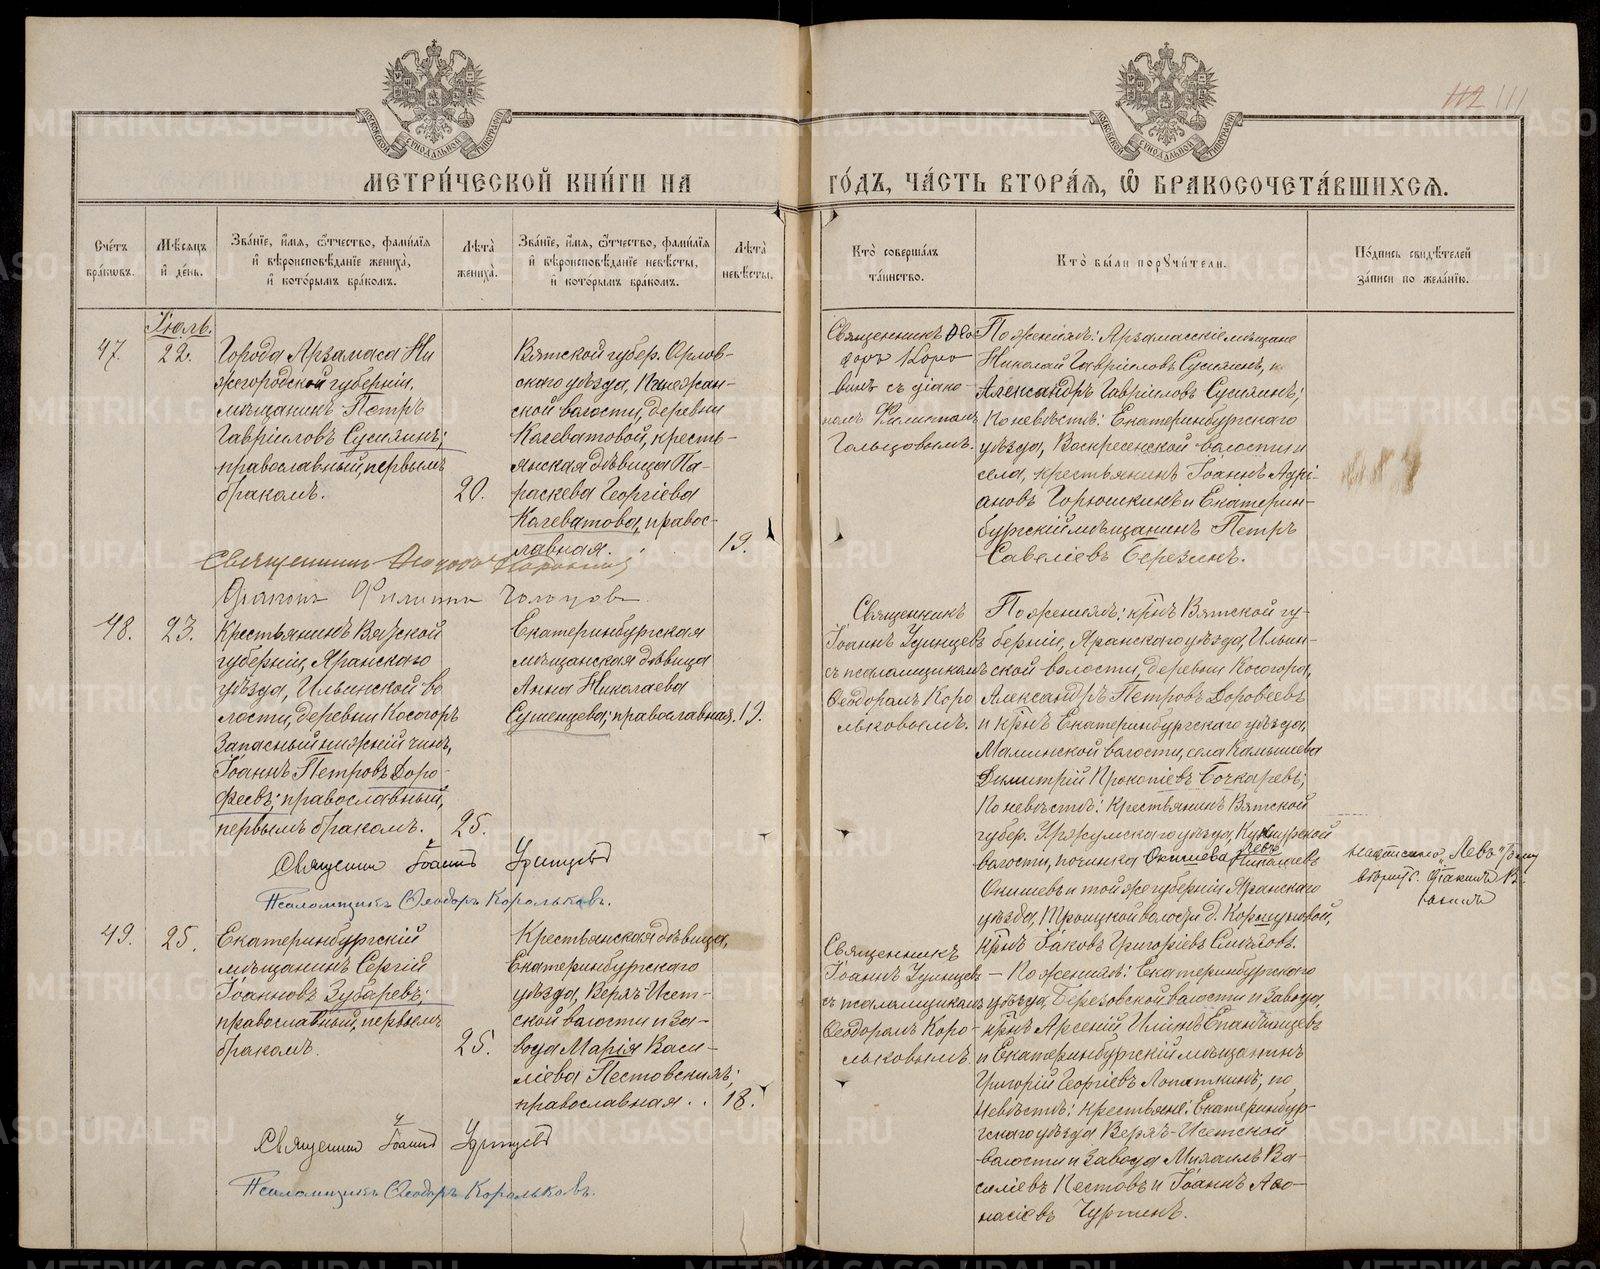 112 111
МЕТРИЧЕСКОЙ КНИГИ НА ГОДЪ, ЧАСТЬ ВТОРАЯ, Ѡ БРАКОСОЧЕТАВШИХСЯ.
Счетъ браковъ.
Мѣсяцъ и день.
Званіе, имя, отчество, фамилія и вѣроисповѣданіе жениха, и которымъ бракомъ.
Лѣта жениха.
Званіе, имя, отчество, фамилія и вѣроисповѣданіе невѣсты, и которымъ бракомъ.
Лѣта невѣсты.
Кто совершалъ таинство.
Кто были поручители.
Подпись свидѣтелей записи по желанію.
Іюль.
47.
22.
Города Арзамаса Ни
жегородской губерніи,
мѣщанинъ Петръ
Гавріиловъ Сусляинъ;
православный, первымъ
бракомъ.
20.
Вятской губер. Орлов-
скаго уѣзда,
ской волости, деревни
Кагеватовой, кресть-
янская дѣвица Па-
раскева Георгіева
Кагеватова, правос-
лавная.
19.
Священникъ Ѳео
доръ Коро
винъ съ діако
номъ Филиппомъ
Гольцовымъ.
По женихѣ: Арзамасскіе мѣщане
Николай Гавріиловъ и
Александръ Гавріиловъ
По невѣстѣ: Екатеринбургскаго
уѣзда, Воскресенской волости и
села, крестьянинъ Іоаннъ Адрі-
ановъ Горюшкинъ и Екатерин-
бургскій мѣщанинъ Петръ
Савеліевъ Березинъ.
Священникъ Ѳеодоръ Коровинъ
Діаконъ Филиппъ Гольцовъ
48.
23.
Крестьянинъ Вятской
губерніи, Яранскаго
уѣзда, Ильинской во
лости, деревни Косогоръ
Запасный нижній чинъ,
Іоаннъ Петровъ Доро-
феевъ; православный,
первымъ бракомъ.
25.
Екатеринбургская
мѣщанская дѣвица
Анна Николаева
Сушенцева; православная.
19.
Священникъ
Іоаннъ
съ псаломщикомъ
Ѳеодоромъ Коро
льковымъ.
По женихѣ: крнъ Вятской гу-
берніи, Яранскаго уѣзда, Ильин-
ской волости, деревни Косогора,
Александръ Петровъ Дорофеевъ
и крнъ Екатеринбургскаго уѣзда,
Маминской волости, села Камышева
Димитрій Прокопіевъ Бочкаревъ;
По невѣстѣ: крестьянинъ Вятской
губер. Уржумскаго уѣзда,
волости, починка Окишева Левъ Николаевъ
Окишевъ и той же губерніи Яранскаго
уѣзда, Троицкой волости д.
крнъ Іаковъ Григоріевъ
"Левъ"
Священникъ Іоаннъ
Псаломщикъ Ѳеодоръ Корольковъ.
49.
25.
Екатеринбургскій
мѣщанинъ Сергій
Іоанновъ Зубаревъ;
православный, первымъ
бракомъ.
25.
Крестьянская дѣвица,
Екатеринбургскаго
уѣзда, Верхъ-Исет-
ской волости и за-
вода Марія Васи-
ліева Пестовскихъ;
православная..
18.
Священникъ
Іоаннъ
съ псаломщикомъ
Ѳеодоромъ Коро-
льковымъ.
— По женихѣ: Екатеринбургскаго
уѣзда, Березовской волости и завода,
крнъ Арсеній Илiинъ Епанчинцевъ
и Екатеринбургскій мѣщанинъ
Григорій Георгіевъ Лопаткинъ; по
невѣстѣ: крестьяне: Екатеринбур-
гскаго уѣзда Верхъ-Исетской
волости и завода Михаилъ Ва-
силіевъ Пестовъ и Іоаннъ Аѳо-
насіевъ
Священникъ Іоаннъ
Псаломщикъ Ѳеодоръ Корольковъ.
METRIKI.GASO-URAL.RU